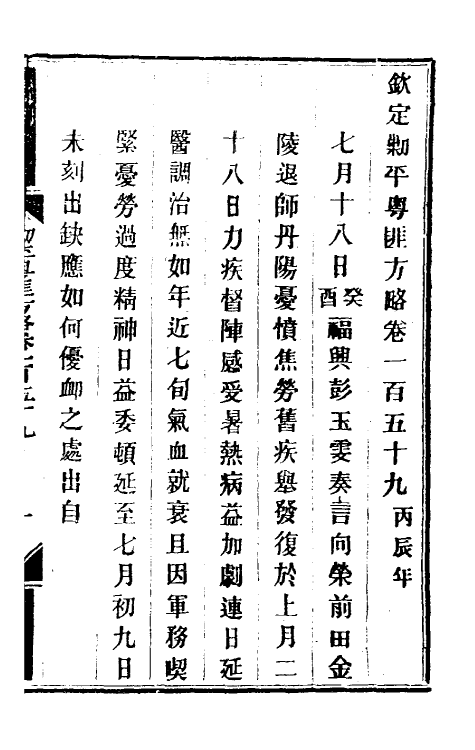 欽定剿平粵匪方略卷一百五十九丙辰年
七月十八日癸酉福興彭玉雯奏言向榮前田金
陵退師丹陽憂憤焦勞舊疾舉發復於上月二
十八日力疾督陣感受暑熱病益加劇連日延
醫調治無如年近七旬氣血就衰且因軍務喫
緊憂勞過度精神日益委頓延至七月初九日
未刻出缺應如何優卹之處出自